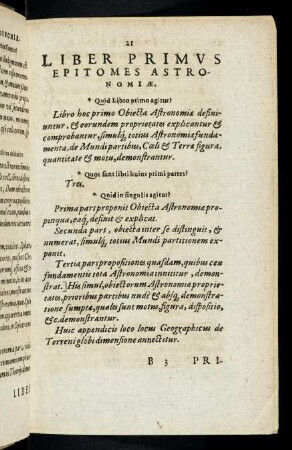 21
LIBER PRIMVS
EPITOMES ASTRO-
NOMIÆ.
* Quid Libro primo agitur?
Libro hoc primo Obiecta Astronomiæ defini-
untur, & eorundem proprietates explicantur &
comprobantur, simulq́; totius Astronomiæ funda-
menta, de Mundi partibus, Cœli & Terræ figura,
quantitate & motu, demonstrantur.
* Quot sunt libri huius primi partes?
Tres.
* Quid in singulis agitur?
Prima pars proponit Obiecta Astronomiæ pro-
pinqua, eaq́; definit & explicat.
Secunda pars, obiecta inter se distinguit, &
numerat, simulq́; totius Mundi partitionem ex-
ponit.
Tertia pars propositiones quasdam, quibus ceu
fundamentis tota Astronomia innititur, demon-
strat. Hîs simul, obiectorum Astronomiæ proprie-
tates, prioribus partibus nudè & absq́; demonstra-
tione sumptæ, quales sunt motus, figura, dispositio,
&c. demonstrantur.
Huic appendicis loco locus Geographicus de
Terreni globi dimensione annectitur.
B 3 PRI-